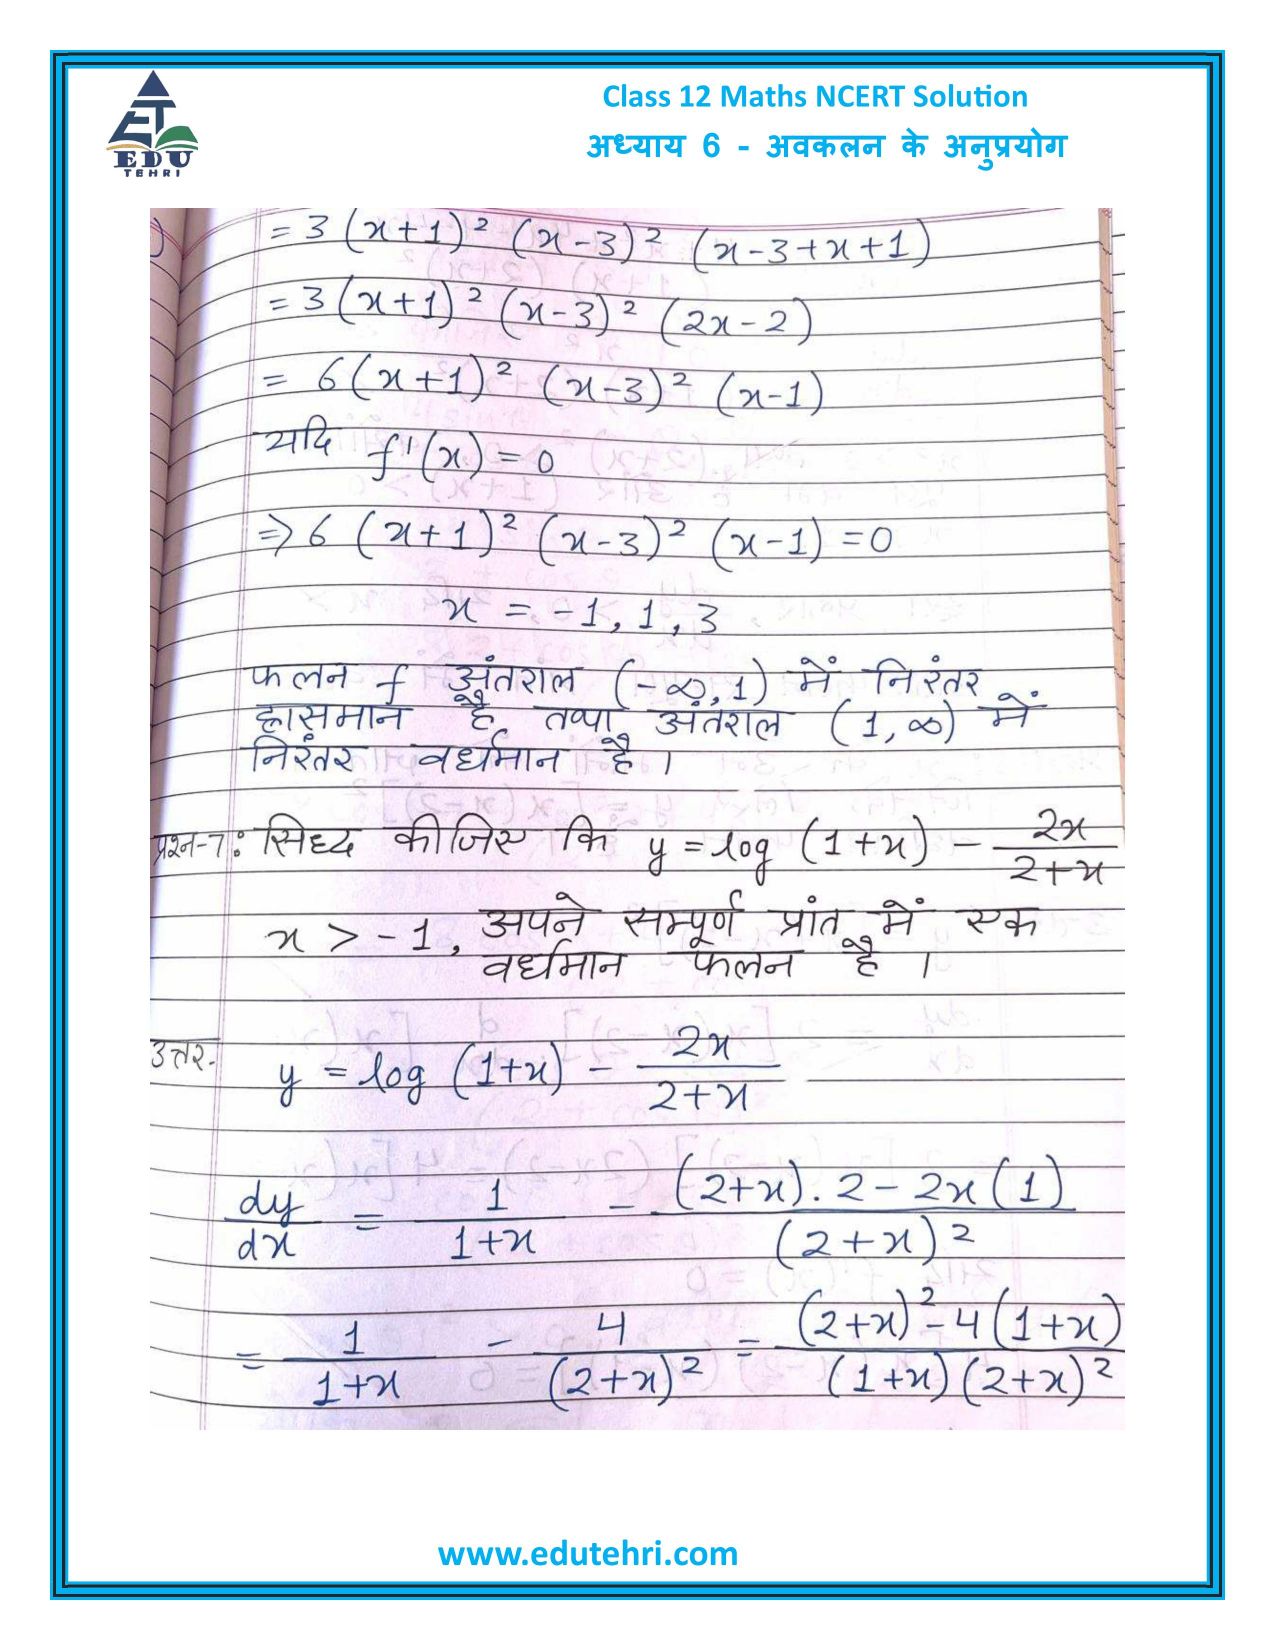 Class 12 Maths NCERT Solution
अध्याय 6 - अवकलन के अनुप्रयोग
ET
EDU
TEHRI
)
= 3 (x+1)² (x-3)² (x-3+x+1)
= 3 (x+1)² (x-3)² (2x-2)
= 6 (x+1)² (x-3)² (x-1)
यदि f'(x) = 0
⇒ 6 (x+1)² (x-3)² (x-1) = 0
x = -1, 1, 3
फलन f अंतराल (-∞, 1) में निरंतर
ह्रासमान है तथा अंतराल (1, ∞) में
निरंतर वर्धमान है ।
प्रश्न-7: सिध्द कीजिए कि y = log (1+x) - 2x/(2+x)
x > -1, अपने सम्पूर्ण प्रांत में एक
वर्धमान फलन है ।
उत्तर- y = log (1+x) - 2x/(2+x)
dy/dx = 1/(1+x) - ((2+x).2 - 2x(1))/(2+x)²
= 1/(1+x) - 4/(2+x)² = ((2+x)² - 4(1+x))/((1+x)(2+x)²)
www.edutehri.com